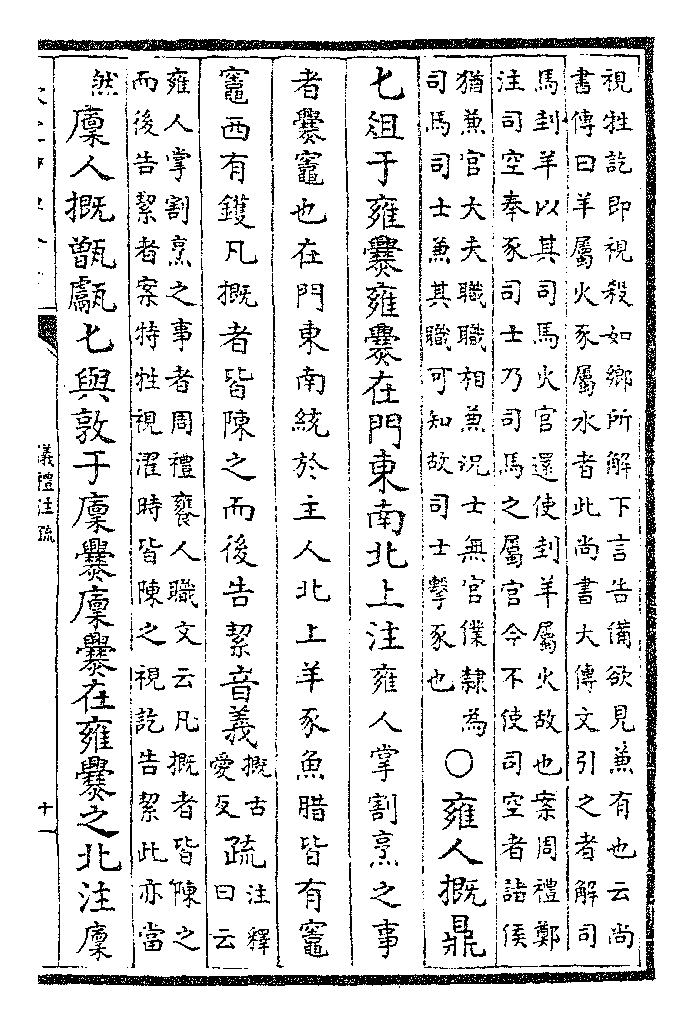 視牲訖即視殺如鄉所解下言告備欲見兼有也云尚
書傳曰羊屬火豕屬水者此尚書大傳文引之者解司
馬刲羊以其司馬火官還使刲羊屬火故也案周禮鄭
注司空奉豕司士乃司馬之屬官今不使司空者諸侯
猶兼官大夫職職相兼況士無官僕隸為
司馬司士兼其職可知故司士擊豕也
○雍人摡鼎
匕俎于雍爨雍爨在門東南北上注雍人掌割烹之事
者爨竈也在門東南統於主人北上羊豕魚腊皆有竈
竈西有鑊凡摡者皆陳之而後告絜音義摡古愛反疏注釋曰云
雍人掌割烹之事者周禮饔人職文云凡摡者皆陳之
而後告絜者案特牲視濯時皆陳之視訖告絜此亦當
然廩人摡甑甗匕與敦于廩爨廩爨在雍爨之北注廩
儀禮注疏
十一